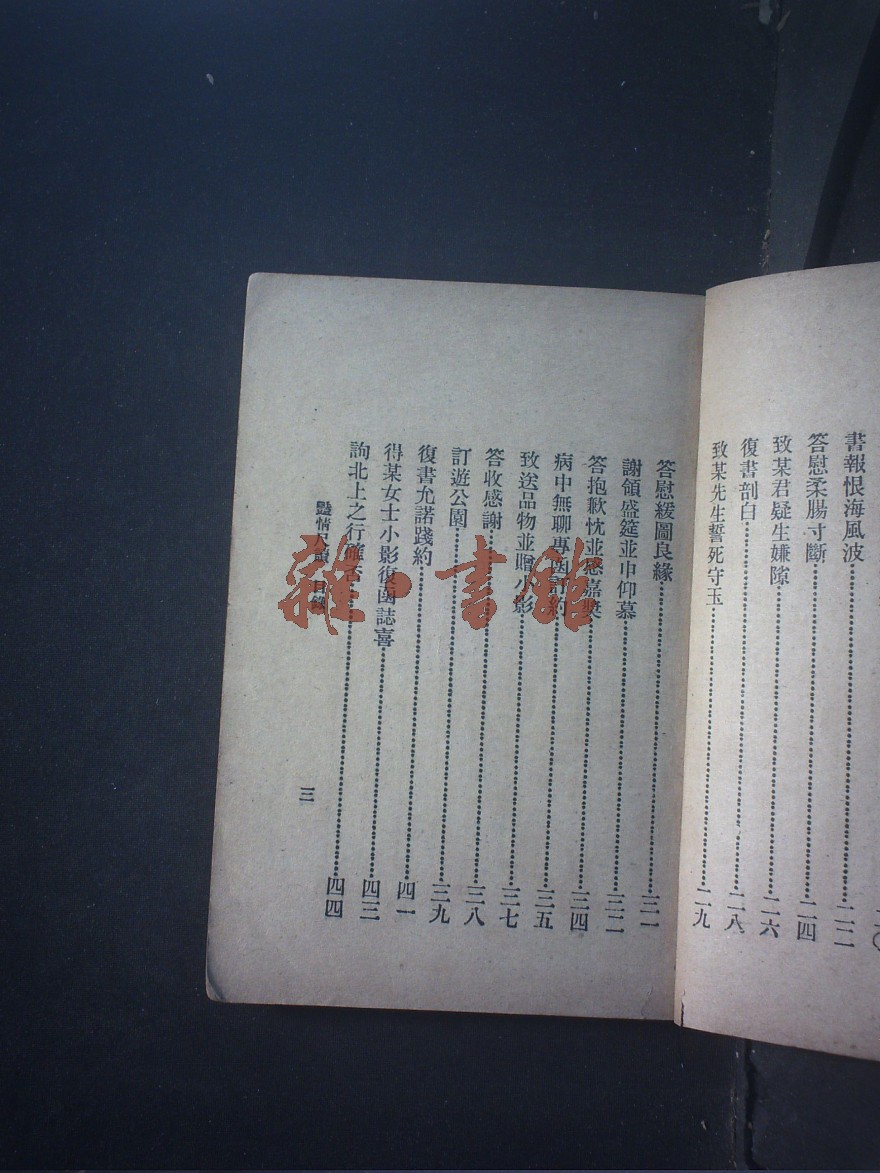 書報恨海風波……二二
答慰柔腸寸斷……二四
致某君疑生嫌隙……二六
復書剖白……二八
致某先生誓死守玉……二九
答慰緩圖良緣……三一
謝領盛筵並申仰慕……三二
答抱歉忱並感嘉獎……三四
病中無聊專函訂約……三五
致送品物並贈小影……三七
答收感謝……三八
訂遊公園……三九
復書允諾踐約……四一
得某女士小影復函誌喜……四三
詢北上之行確否……四四
豔情尺牘 目錄
三
雜·書館